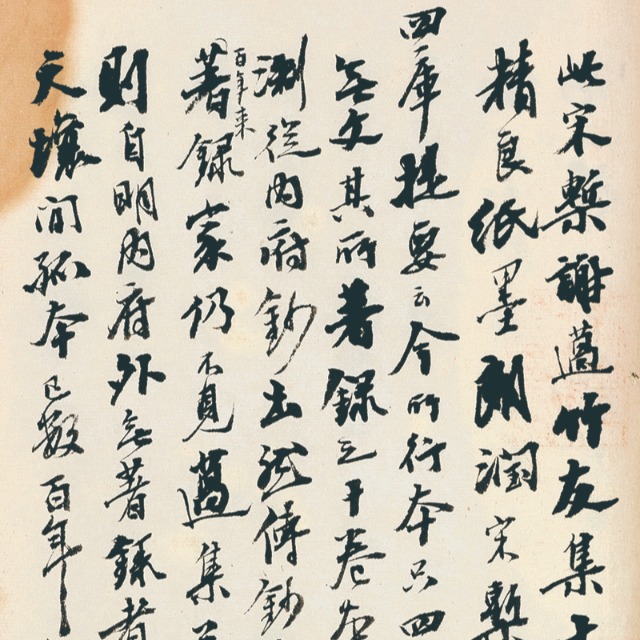 此宋槧謝薖竹友集十
精良紙墨朗潤宋槧
四庫提要云今所行本只四
無文其所著錄之十卷
淵從內府鈔出然傳鈔
百年來
著錄家仍不見薖集
則自明內府外無著錄者
天壤間孤本已數百年